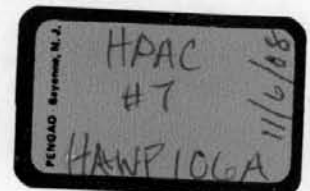 PENGAD · Bayonne, N. J.
HPAC
#7
HAWP106A
11/6/08